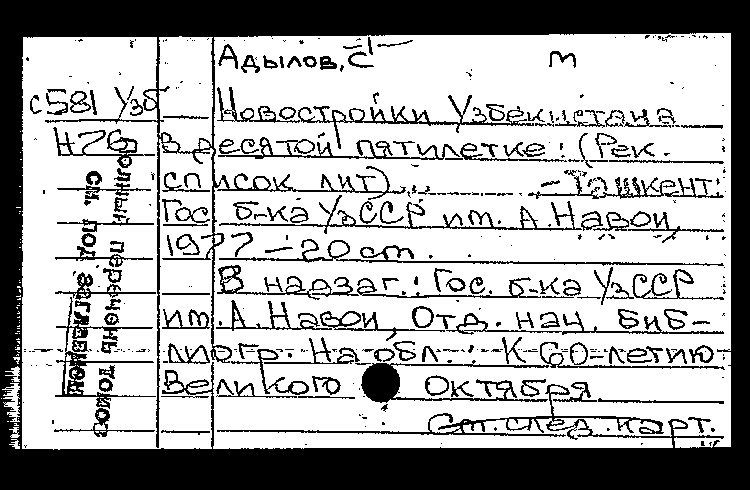 Адылов, С м
с581 Узб Новостройки Узбекистана
Н76 в десятой пятилетке: (Рек.
список лит) – Ташкент:
Гос. б-ка УзССР им. А. Навои,
1977 – 20 ст.
В надзаг.: Гос. б-ка УзССР
им. А. Навои, Отд. нац. биб-
лиогр. На обл.: К 60-летию
Великого Октября.
См. след. карт.
полный перечень томов
см. под заглавием